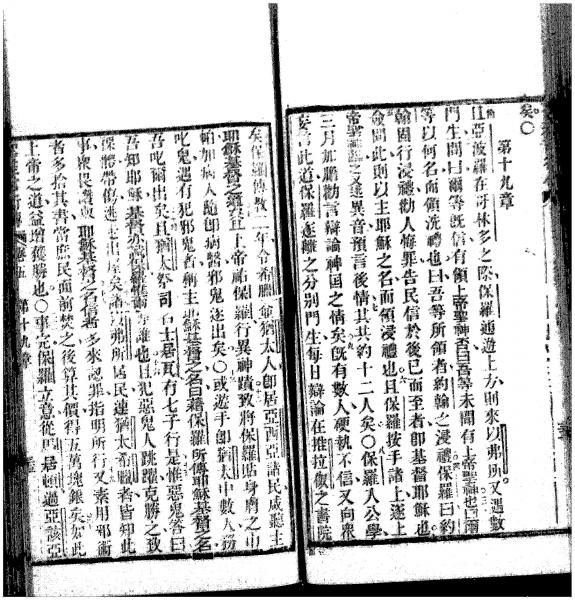 矣○
第十九章
且亞波羅在哥林多之際保羅通遊上方則來以弗所又遇數
門生問曰爾等旣信有領上帝聖神否曰吾等未聞有上帝聖神也曰爾
等以何名而領洗禮也曰吾等所領者約翰之浸禮保羅曰約
翰固行浸禮勸人悔罪告民信於後己而至者卽基督耶穌也
僉聞此則以主耶穌之名而領浸禮也且保羅按手諸上遂上
帝聖神臨之及達異音預言後情其共約十二人矣○保羅入公學
三月加膽勸言辯論神囯之情矣旣有數人硬執不信又向衆
妄言此道保羅遂離之分別門生每日辯論在推拉之書院
矣保羅傳敎二年令希臘猶太人卽居亞西亞諸民咸聽主
耶穌基督之道矣且上帝祐保羅行異神蹟致將保羅貼身膚之巾
帕加病人隨卽病醫邪鬼遂出矣○或遊手卽猶太中數人務
叱鬼遇有犯邪鬼者稱主耶穌基督之名曰藉保羅所傳耶穌基督之名
吾叱爾出矣且猶太祭司名士基瓦有七子行是惟惡鬼答曰
吾知耶穌基督亦識保羅爾等誰也且犯惡鬼人跳躍克勝之致
體帶傷逃走出屋矣諸以弗所居民連猶太希臘者皆知此
事衆畏懼耶穌基督之名信者多來認罪指明所行又素用邪術
者多捨其書當庶民面前焚之後算其價得五萬塊銀矣如此
上帝之道益增獲勝也○事完保羅立意從馬基頓過亞該亞
卷五 第十九章